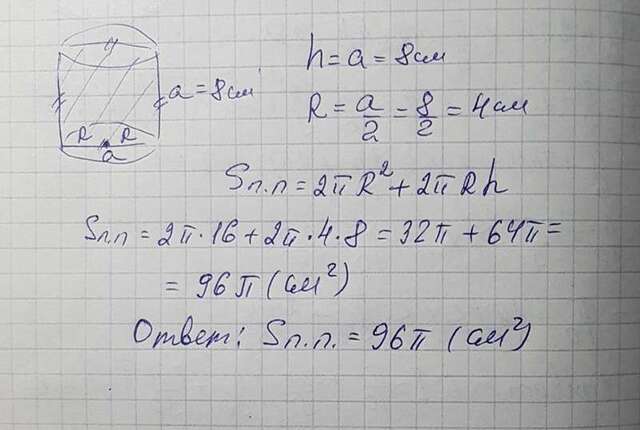 a = 8см
h = a = 8см
R = a/2 = 8/2 = 4см
R R
a
Sп.п = 2πR² + 2πRh
Sп.п = 2π·16 + 2π·4·8 = 32π + 64π =
= 96π (см²)
Ответ: Sп.п. = 96π (см²)